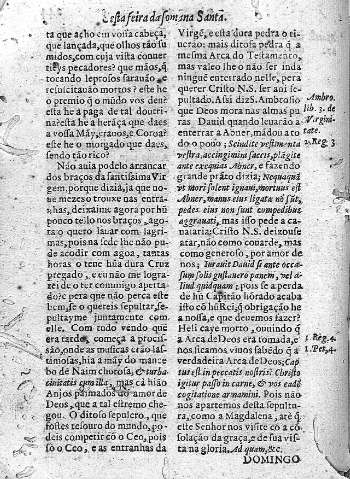 Sesta feira da somana Santa.
ta que acho em vossa cabeça,
que lançada, que olhos tão su
midos, com cuja vista conuer
tieys pecadores? que mãos, q̃
tocando leprosos sarauão, e
resuscitauão mortos? este he
o premio q̃ o mũdo vos deu?
esta he a paga de tal doutri-
na? esta he a herãça que daes
a vossa Mãy, crauos, e Coroa?
este he o morgado que daes,
sendo tão rico?
Não auia podelo arrancar
dos braços da santissima Vir
gem, porque dizia, ja que no-
ue mezes o trouxe nas entra-
nhas, deixaime agora por hũ
pouco telo nos braços, ago-
ra o quero lauar com lagri-
mas, pois na sede lhe não pu-
de acodir com agoa, tantas
horas o tene hũa dura Cruz
pregado, e eu não me logra-
rei de o ter commigo aperta-
do? e pera que não perca este
bem, se o quereis sepultar, se-
pultayme juntamente com
elle. Com tudo vendo que
era tarde, começa a procis-
são, onde as musicas erão las-
timosas, hia a mãy do mance-
bo de Naim chorosa, & turba
ciuitatis cum illa, mas ca hião
Anjos pasmados do amor de
Deos, que a tal estremo che-
gou. O ditoso sepulcro, que
fostes tesouro do mundo, po-
deis competir cõ o Ceo, pois
só o Ceo, e as entranhas da
Virgẽ, e esta dura pedra o ti-
uerão: mais ditosa pedra q̃ a
mesma Arca do Testamento,
mas valeo lhe o não ser inda
ninguẽ enterrado nelle, pera
querer Christo N.S. ser ani se-
pultado. Assi diz S. Ambrosio
que Deos mora nas almas pu
ras. Dauid quando leuarão a
enterrar a Abner, mãdou a to
do o pouo; Scindite vestimenta
vestra, accingimini saccis, plãgite
ante exequias Abner, e fazendo
grande prãto dizia; Nequaquã
vt mori solent ignaui, mortuus est
Abner, manus eius ligatæ nõ sũt,
pedes eius non sunt compedibus
aggrauati, mas isso pede a ca-
nalaria: Christo N.S. deixouse
atar, não como couarde, mas
como generoso, por amor de
nos; Iurauit Dauid si ante occa-
sum solis gustauero panem, vel a-
liud quidquam; pois se a perda
de hũ Capitão hõrado acaba
isto cõ hũ Rei; q̃ obrigação he
a nossa, que deuemos fazer?
Heli caye morto, ouuindo q̃
a Arca de Deos era tomada, e
nos ficamos viuos sabẽdo q̃ a
verdadeira Arca de Deos; Cap
tus est in peccatis nostris: Christo
igitur passo in carne, & vos eadẽ
cogitatione armamini. Pois não
nos apartemos desta sepultu-
ra, como a Magdalena, até q̃
este Senhor nos visite cõ a cõ
solação da graça, e de sua vis-
ta na gloria. Ad quam, &c.
DOMINGO
Ambro.
lib. 3. de
Virgini-
tate.
2. Reg. 3
1. Reg. 4.
1. Pet. 4.